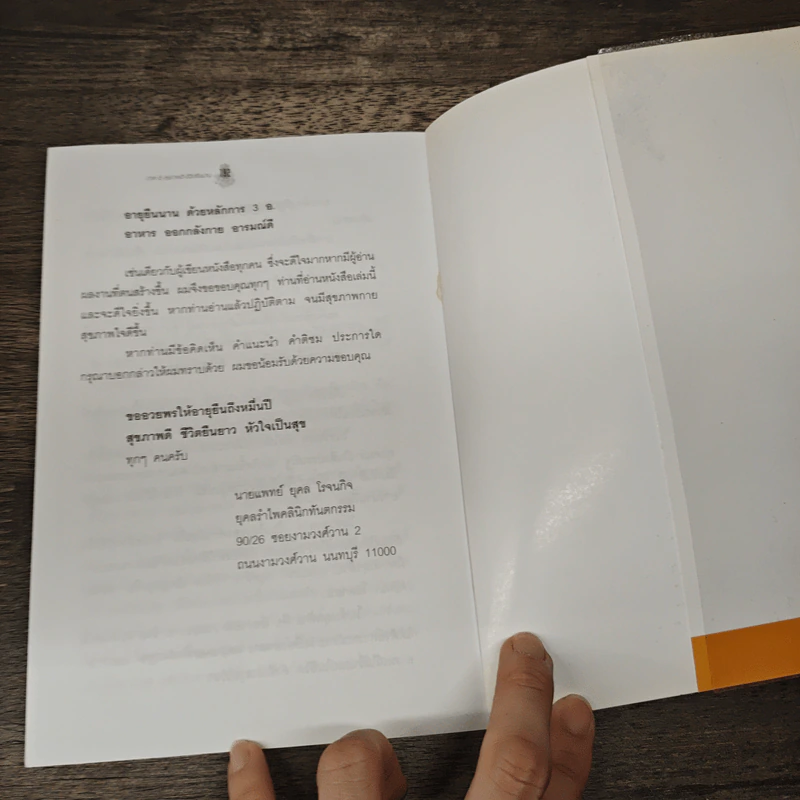 อายุยืนนาน ด้วยหลักการ 3 อ.
อาหาร ออกกลังกาย อารมณ์ดี
เช่นเดียวกับผู้เขียนหนังสือทุกคน ซึ่งจะดีใจมากหากมีผู้อ่าน
ผลงานที่ตนสร้างขึ้น ผมจึงขอขอบคุณทุกๆ ท่านที่อ่านหนังสือเล่มนี้
และจะดีใจยิ่งขึ้น หากท่านอ่านแล้วปฏิบัติตาม จนมีสุขภาพกาย
สุขภาพใจดีขึ้น
หากท่านมีข้อคิดเห็น คำแนะนำ คำติชม ประการใด
กรุณาบอกกล่าวให้ผมทราบด้วย ผมขอน้อมรับด้วยความขอบคุณ
ขออวยพรให้อายุยืนถึงหมื่นปี
สุขภาพดี ชีวิตยืนยาว หัวใจเป็นสุข
ทุกๆ คนครับ
นายแพทย์ ยุคล โรจนกิจ
ยุคลรำไพคลินิกทันตกรรม
90/26 ซอยงามวงศ์วาน 2
ถนนงามวงศ์วาน นนทบุรี 11000